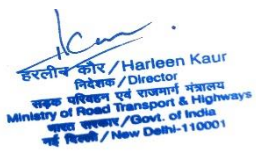 हरलीन कौर / Harleen Kaur
निदेशक / Director
सड़क परिवहन एवं राजमार्ग मंत्रालय
Ministry of Road Transport & Highways
भारत सरकार / Govt. of India
नई दिल्ली / New Delhi-110001